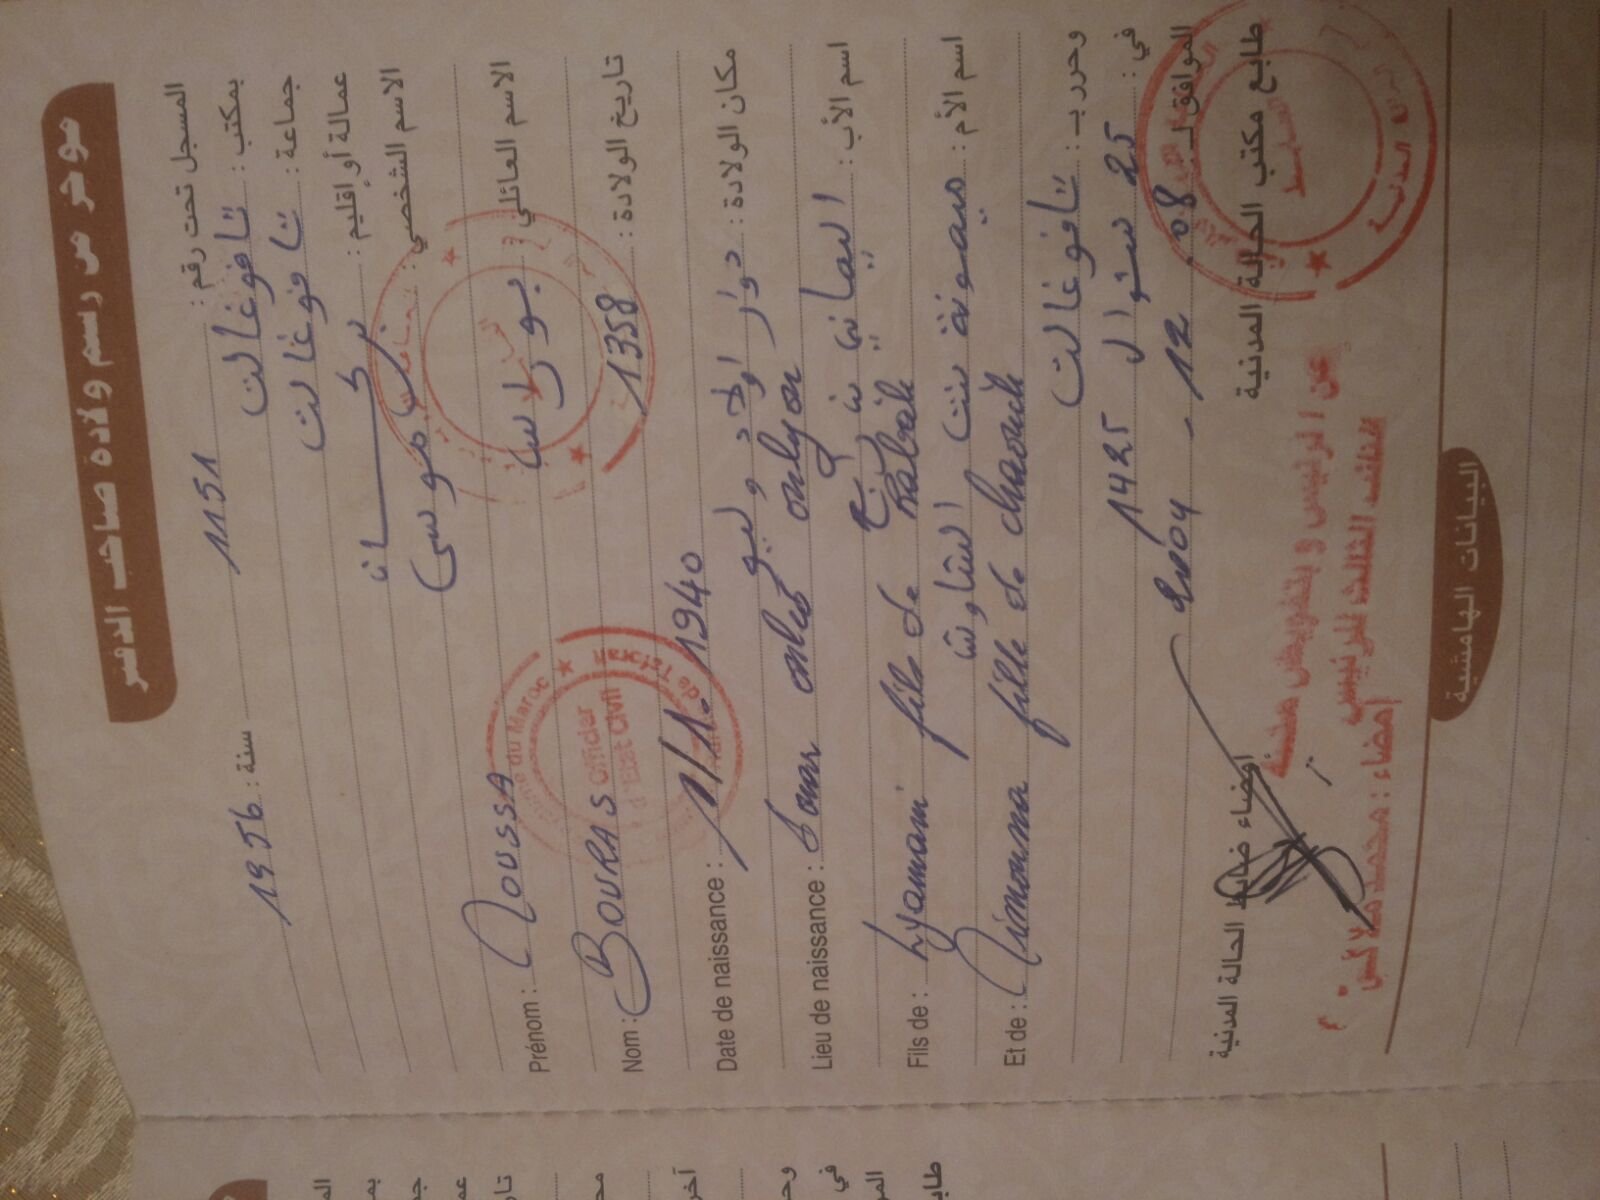 موجز من رسم ولادة صاحب الدفتر
المسجل تحت رقم : 1151 سنة : 1956
بمكتب : تافوغالت
جماعة : تافوغالت
عمالة أو إقليم : بركان
الاسم الشخصي : موسى
Prénom : MOUSSA
الاسم العائلي : بوراس
Nom : BOURAS
تاريخ الولادة : 1358
Date de naissance : 1/11. 1940
مكان الولادة : دوار اولاد
Lieu de naissance :
اسم الأب : اليماني بن رابح
Fils de : Lyamani fils de Rabah
اسم الأم : ميمونة بنت الشاوش
Et de : Mimouna fille de chaouch
وحرر بـ : تافوغالت
في : 25 شوال 1425
الموافق لـ 08 . 12 - 2004
طابع مكتب الحالة المدنية
إمضاء ضابط الحالة المدنية
عن الرئيس و بتفويض منه
إمضاء : محمد
البيانات الهامشية
du Maroc
Officier
d'Etat Civil